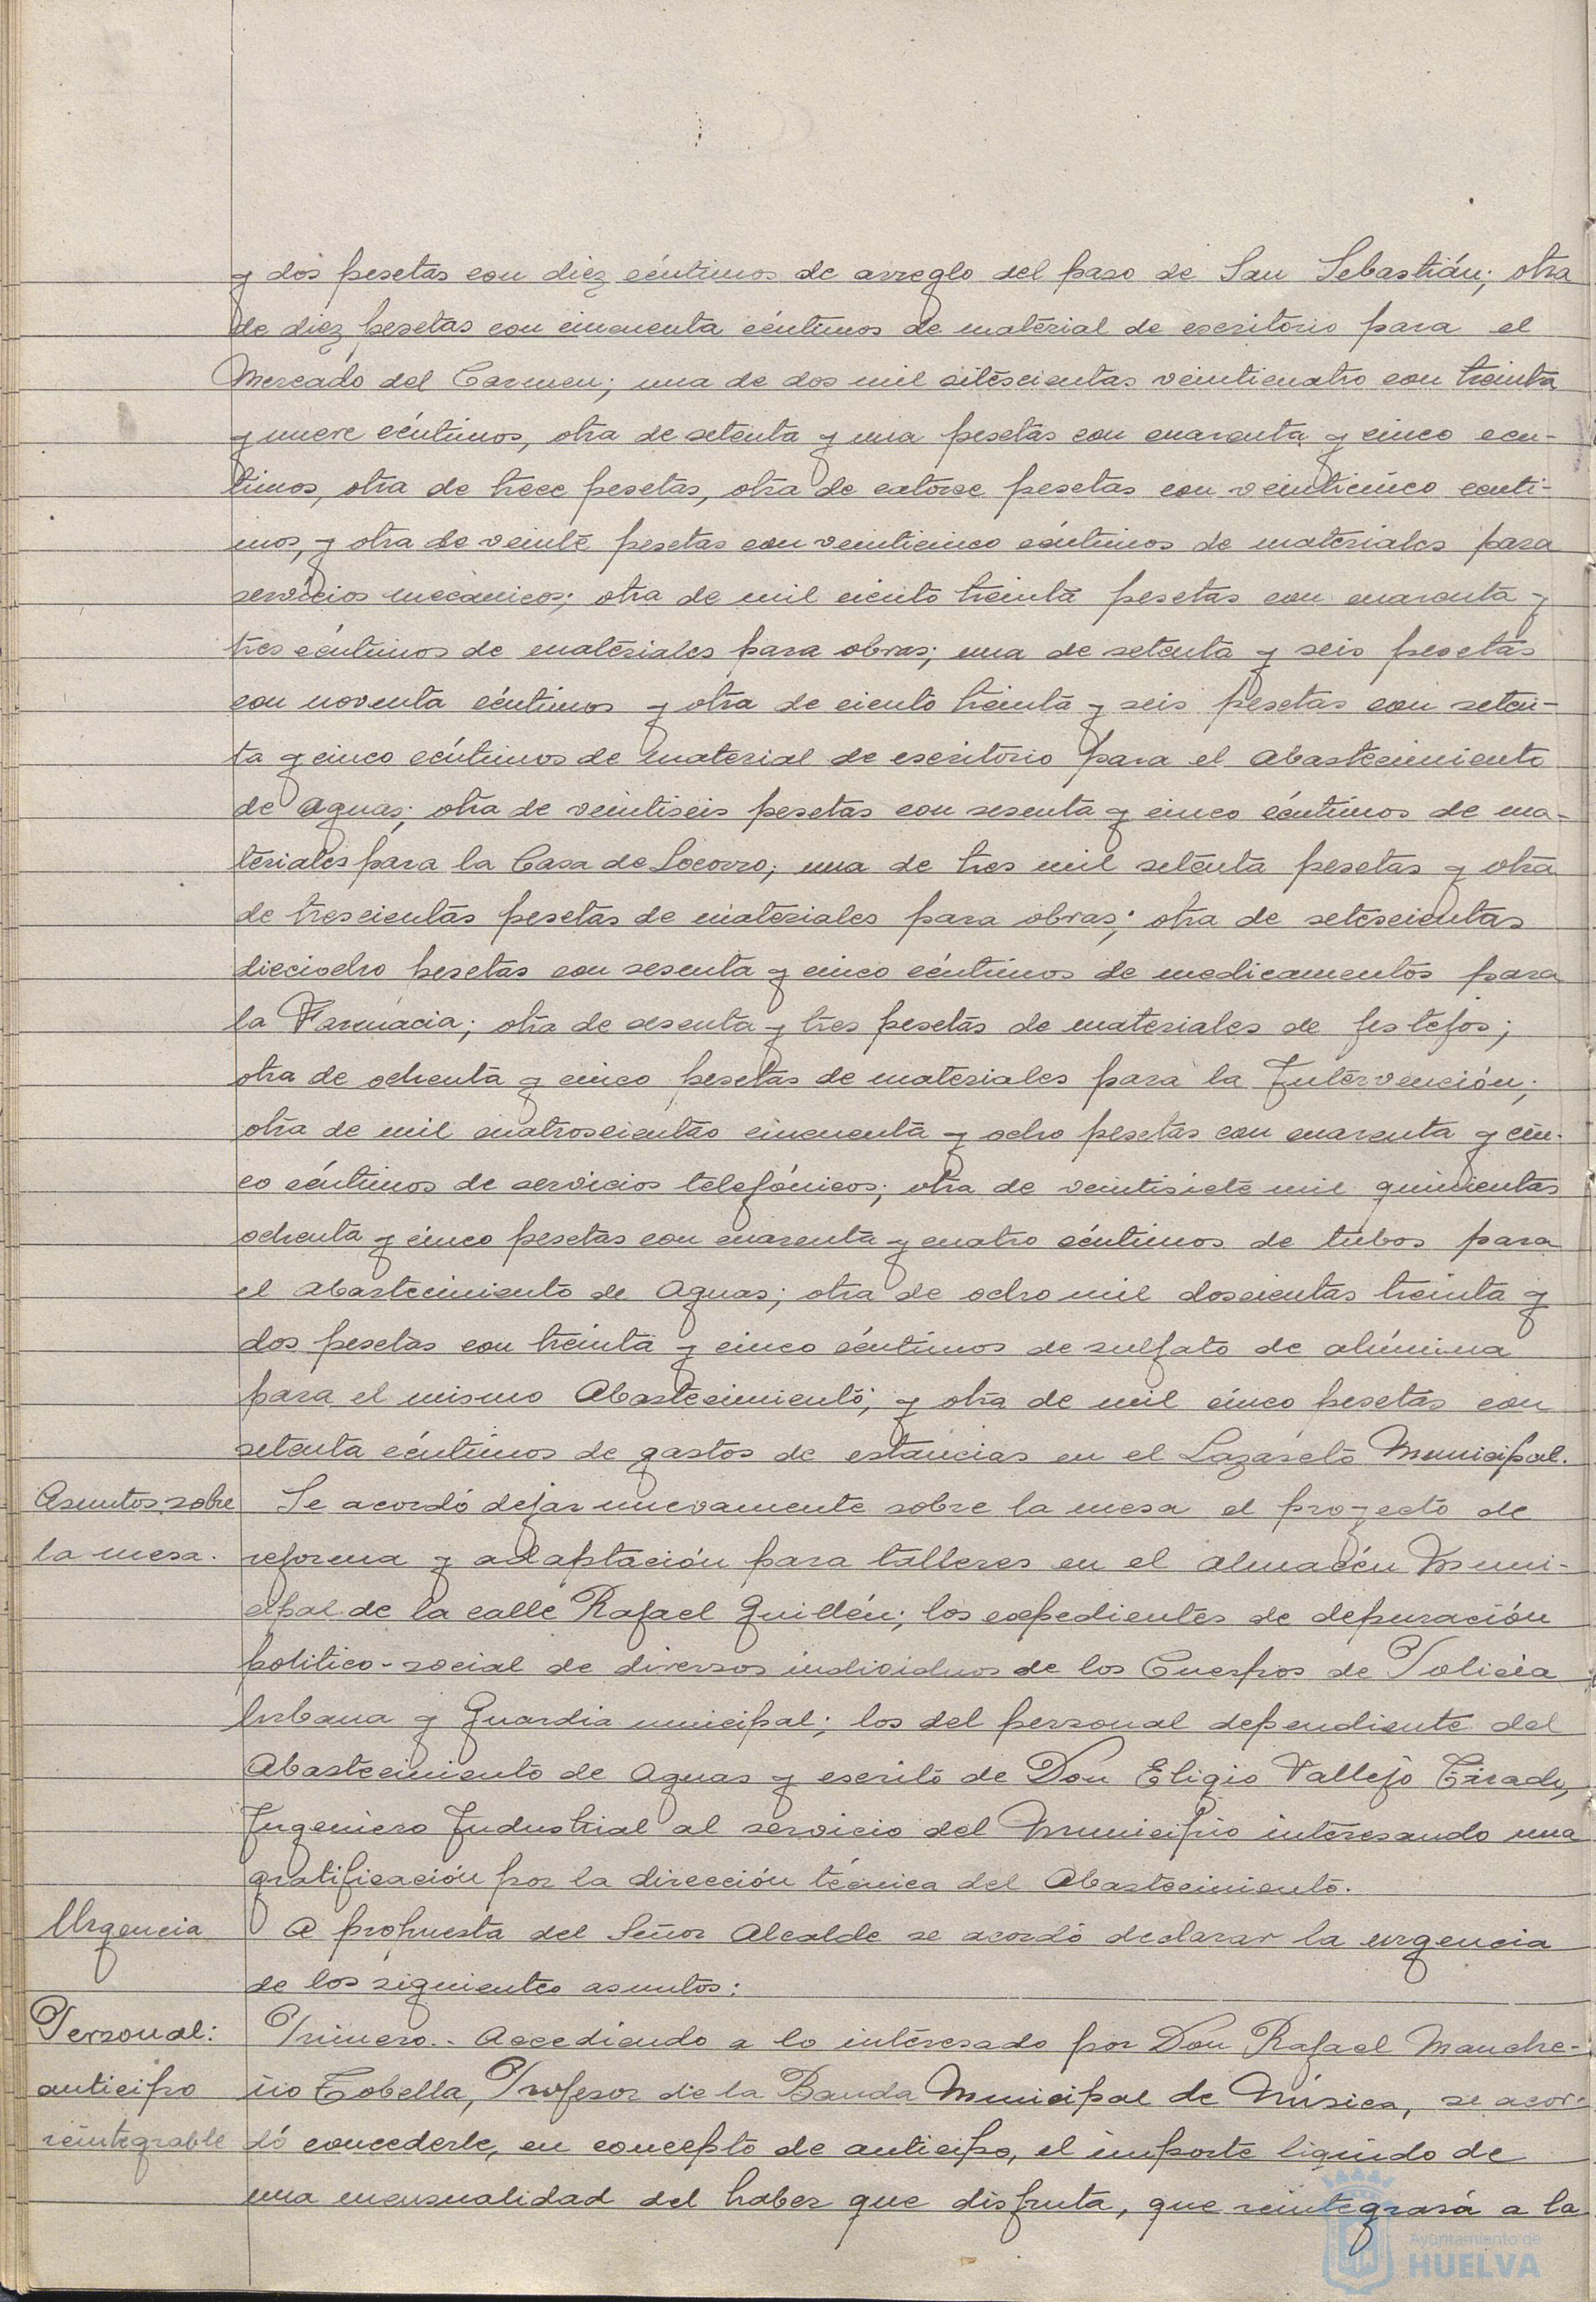 y dos pesetas con diez céntimos de arreglo del paso de San Sebastián; otra
de diez pesetas con cincuenta céntimos de material de escritorio para el
Mercado del Carmen; una de dos mil setescientas veinticuatro con treinta
y nueve céntimos, otra de setenta y una pesetas con cuarenta y cinco cen-
timos, otra de trece pesetas, otra de catorce pesetas con veinticinco centi-
mos, y otra de veinte pesetas con veinticinco céntimos de materiales para
servicios mecánicos; otra de mil ciento treinta pesetas con cuarenta y
tres céntimos de materiales para obras; una de setenta y seis pesetas
con noventa céntimos y otra de ciento treinta y seis pesetas con seten-
ta y cinco céntimos de material de escritorio para el Abastecimiento
de Aguas; otra de veintiseis pesetas con sesenta y cinco céntimos de ma-
teriales para la Casa de Socorro; una de tres mil setenta pesetas y otra
de trescientas pesetas de materiales para obras; otra de setescientas
dieciocho pesetas con sesenta y cinco céntimos de medicamentos para
la Farmacia; otra de sesenta y tres pesetas de materiales de festejos;
otra de ochenta y cinco pesetas de materiales para la Intervención;
otra de mil cuatroscientas cincuenta y ocho pesetas con cuarenta y cin-
co céntimos de servicios telefónicos; otra de veintisiete mil quinientas
ochenta y cinco pesetas con cuarenta y cuatro céntimos de tubos para
el Abastecimiento de Aguas; otra de ocho mil doscientas treinta y
dos pesetas con treinta y cinco céntimos de sulfato de alúmina
para el mismo Abastecimiento; y otra de mil cinco pesetas con
setenta céntimos de gastos de estancias en el Lazareto Municipal.
Asuntos sobre Se acordó dejar nuevamente sobre la mesa el proyecto de
la mesa. reforma y adaptación para talleres en el Almacén Muni-
cipal de la calle Rafael Guillén; los expedientes de depuración
politico-social de diversos individuos de los Cuerpos de Policía
Urbana y Guardia municipal; los del personal dependiente del
Abastecimiento de Aguas y escrito de Don Eligio Vallejo Tirado,
Ingeniero Industrial al servicio del Municipio interesando una
gratificación por la dirección técnica del Abastecimiento.
Urgencia A propuesta del Señor Alcalde se acordó declarar la urgencia
de los siguientes asuntos:
Personal: Primero.- Accediendo a lo interesado por Don Rafael Manche-
anticipo ño Tobella, Profesor de la Banda Municipal de Música, se acor-
reintegrable dó concederle, en concepto de anticipo, el importe liquido de
una mensualidad del haber que disfruta, que reintegrará a la
Ayuntamiento de
HUELVA